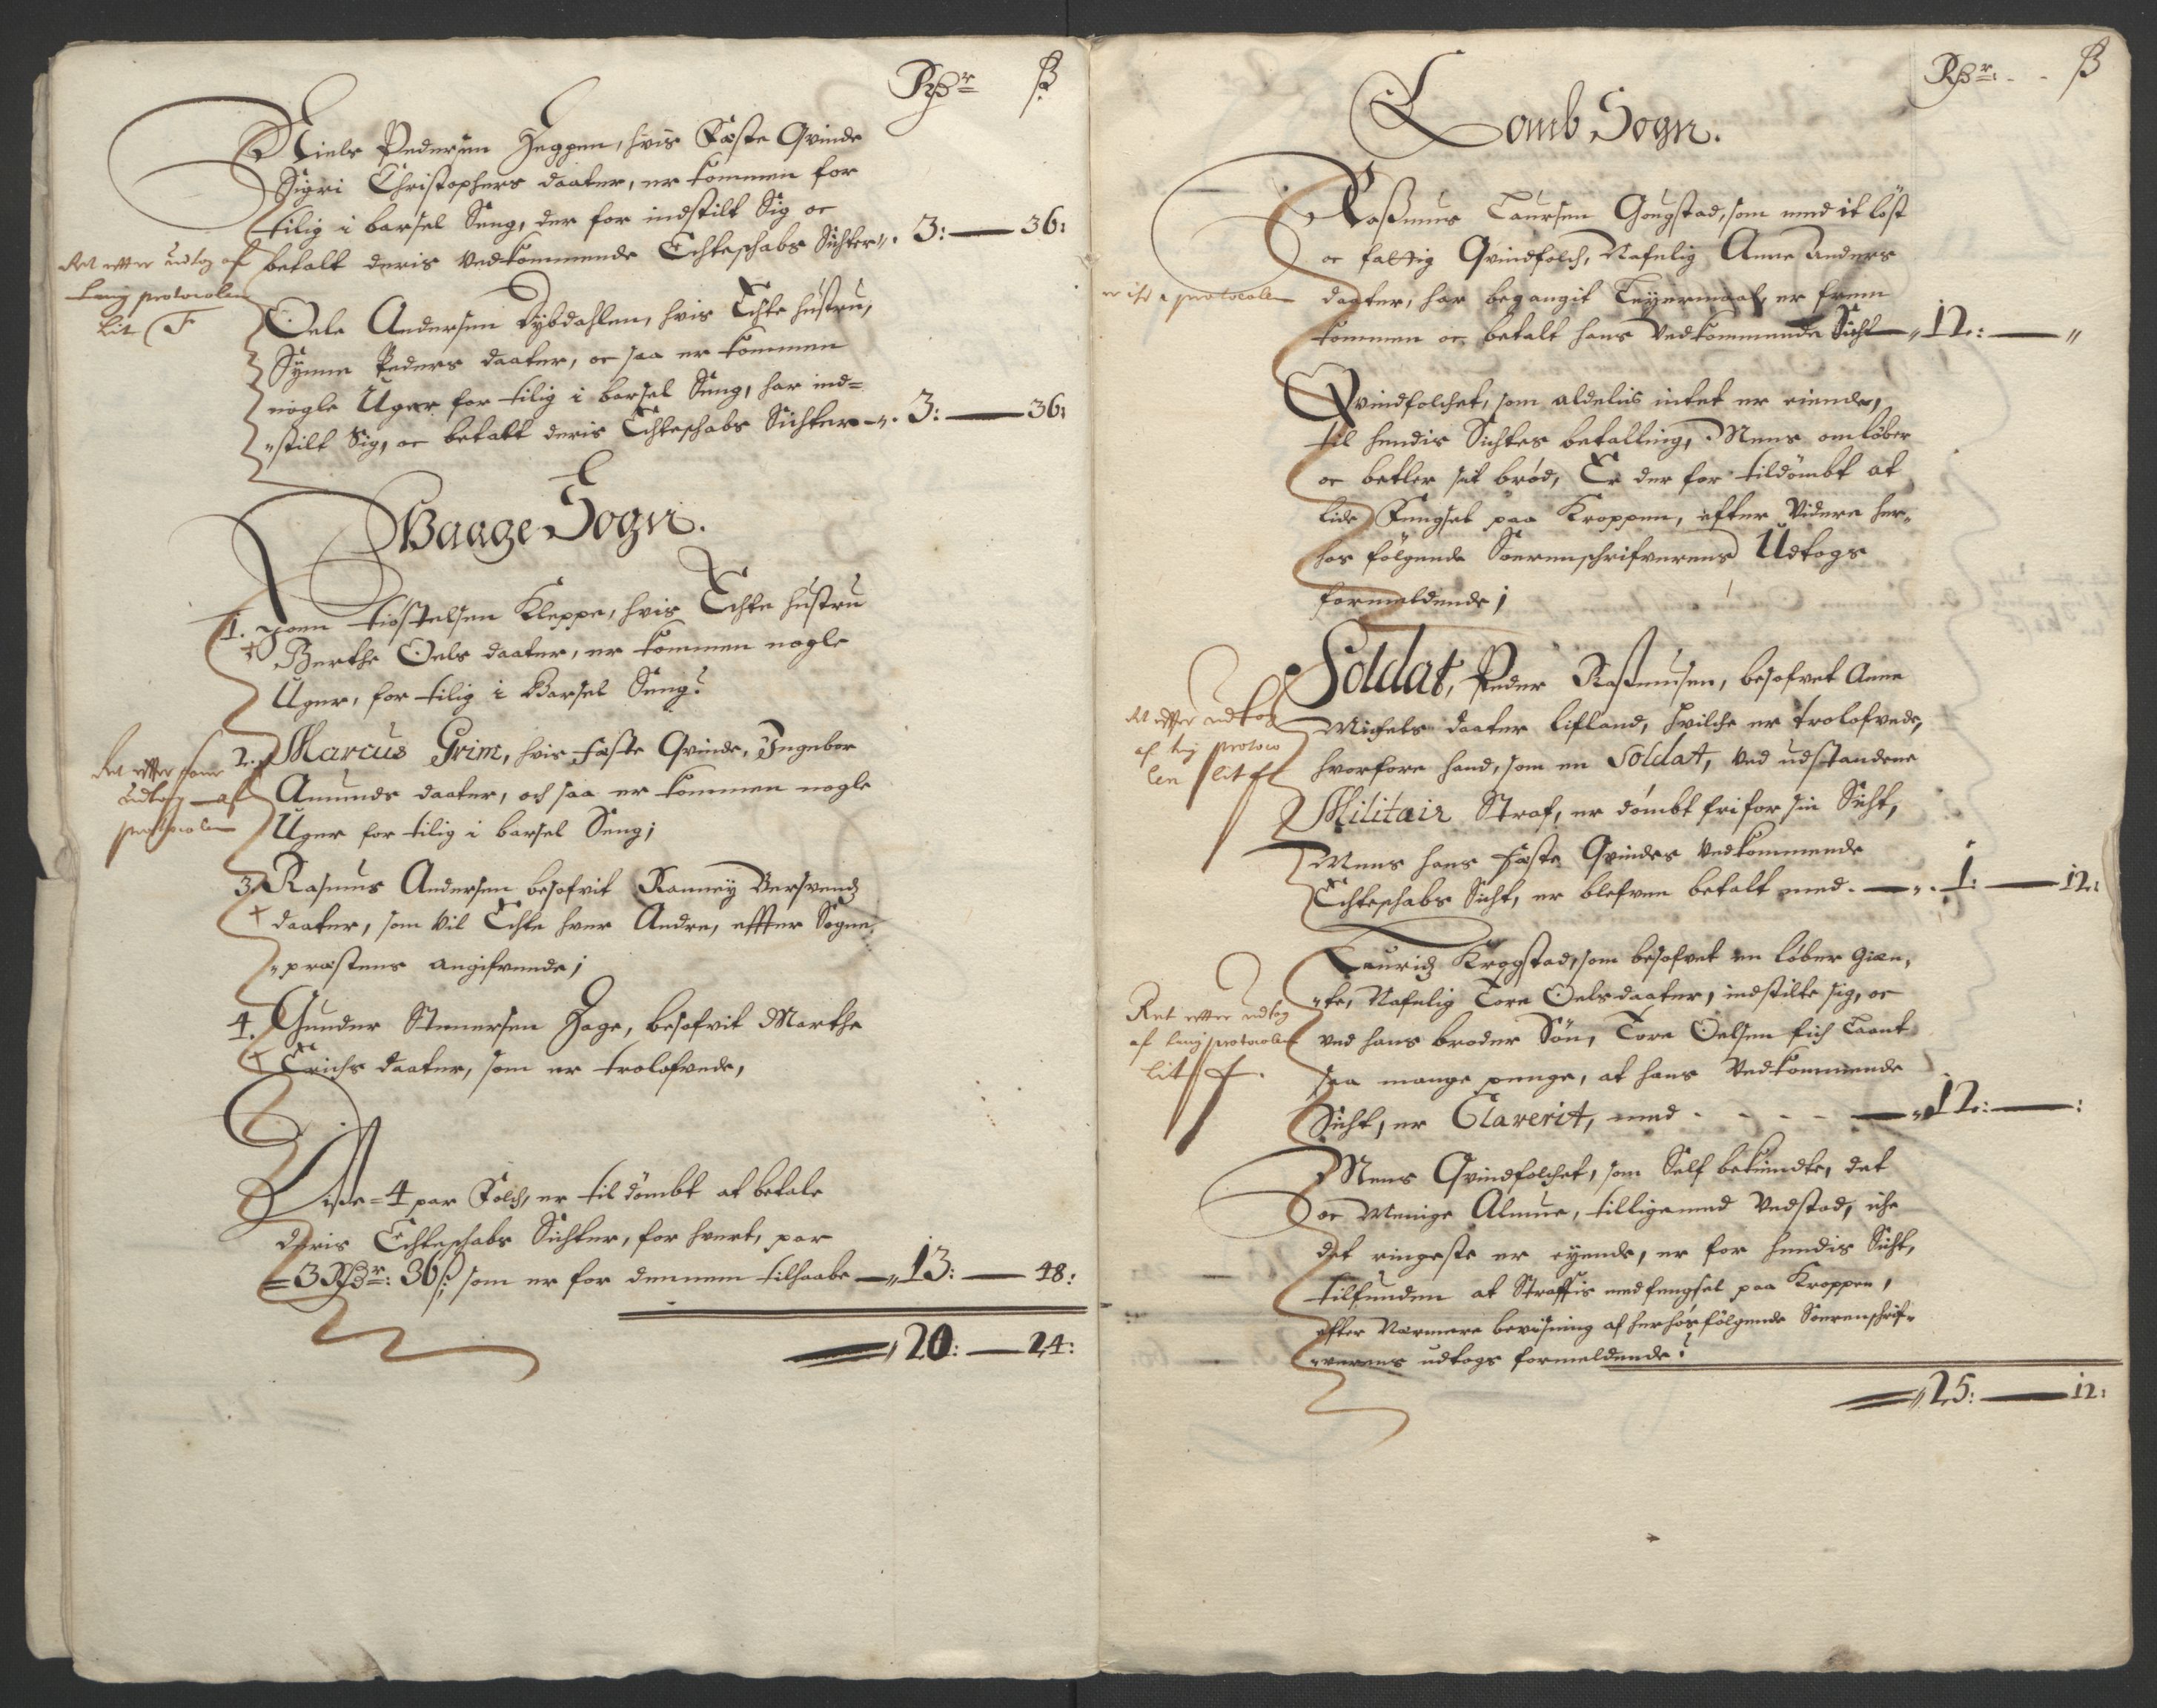 Rdr ß
Niels Pedersen Heggen, hvis Fæste Qvinde
Sigri Christophers daater, er kommen for
tilig i barsel Seng, der for indstilt Sig oc
betalt deris vedkommende Echteschabs Sichter 3: 36:
Ret efter udtog af
ting protocolen
Lit F
Oele Andersen Dybdahlen, hvis Echte hustru,
Synne Peders daater, oc saa er kommen
nogle Uger for tilig i barsel Seng, har ind=
stilt Sig, oc betalt deris Echteschabs Sichter 3: 36:
Waage Sogn.
1. Joen Kleppe, hvis Echte hustru
Berthe Oels daater, er kommen nogle
Uger, for tilig i Barsel Seng;
2. Marcus Grim, hvis fæste Qvinde, Ingebor
Amunds daater, och saa er kommen nogle
Uger for tilig i barsel Seng;
Ret efter
udtog af
protocolen
3. Rasmus Andersen besofvit Ranney
daater, som vil Echte hver Andre, effter Sogne
præstens angifvende;
4. Gunder Stenersen Hage, besofvit Marthe
Erichs daater, som er trolofvede,
Disse=4 par Folch, er til dömbt at betale
deris Echteschabs Sichter, for hvert, par
=3 Rdr: 36 ß; som er for dennem tilsaabe 13: 48:
20: 24:
Rdr: ß
Lomb Sogn.
Rasmus Laursen Gougstad, som med it löst
oc fattig Qvindfolch, Nafnlig Anne Anders
daater, har begangit Leyermaal, er frem
kommen oc betalt hans vedkommende Sicht 12:
protocolen
Qvindfolchet, som aldelis intet er eiende,
til hendis Sichtes betalling, Mens omløber
oc betler sit brød, Er der for tildömbt at
lide Fengsel paa Kroppen, efter videre her
hos fölgende Sorenschrifverens Udtogs
formeldende;
Soldat, Peder Rasmusen, besofvet Anne
Michels daater lifland, hvilche er trolofvede,
hvorfore hand, som en Soldat, ved udstandene
Militair Straf, er dömbt fri for sin Sicht,
Mens hans fæste Qvindes vedkommende
Echteschabs Sicht, er blefven betalt med 1: 12:
Ret efter udtog
af ting protoco
len lit f
Lauridz Krogstad, som besofvet en løber
te, Nafnlig Tore Oelsdaater, indstilte sig, oc
ved hans broder Sön, Tore Oelsen fich Laant
saa mange penge, at hans vedkommende
Sicht, er Claverit, med - - - - 12:
Ret efter udtog
af ting protocolen
lit f.
Mens Qvindfolchet, som Self bekiendte, det
oc Menige Almue, tilligemed vedstod, iche
det ringeste er eyende, er for hendis Sicht,
tilfunden at Straffis med fengsel paa Kroppen,
efter Nærmere bevisning af herhos fölgende Sorenschrif-
verens udtogs formeldende;
25: 12: